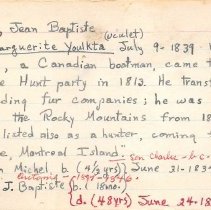 , Jean Baptiste
(ouulet)
Marguerite Youlkta July 9-1839
, a Canadian boatman, came t
e Hunt party in 1812. He trans
ding fur companies; he was
the Rocky Mountains from 18
listed also as a hunter, coming t
e, Montreal Island"
son Charles - b-6-
n Michel, b. (4/3 yrs) June 31-183
1845-9846.
J. Baptiste b. ( 18mo.
{d. (48 yrs) June 24-18